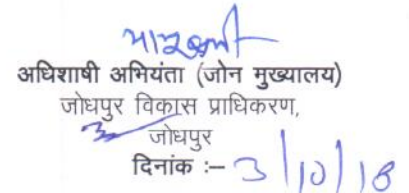 अधिशाषी अभियंता (जोन मुख्यालय)
जोधपुर विकास प्राधिकरण,
जोधपुर
दिनांक :– 3/10/18